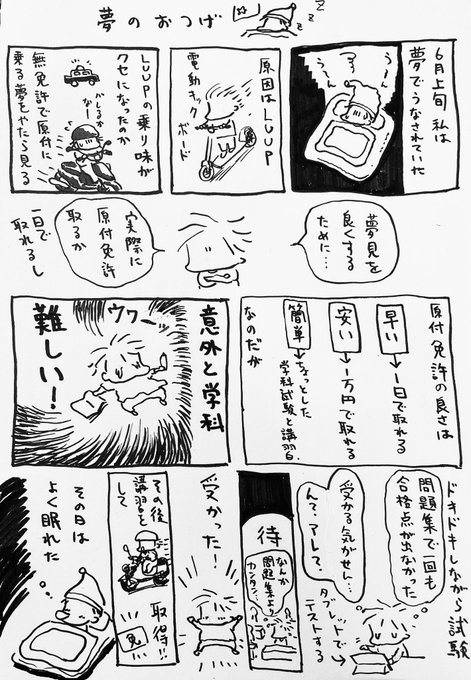 夢のおつげ
z
z
z
6月上旬 私は
夢でうなされていた
うーん
うーん
原因はLUUP
電動キック
ボード
LUUPの乗り味が
クセになったのか
無免許で原付に
乗る夢をやたら見る
夢見を
良くする
ために…
実際に
原付免許
取るか
一日で
取れるし
原付免許の良さは
早い→1日で取れる
安い→1万円で取れる
簡単→ちょっとした
学科試験と講習
なのだが
意外と学科
難しい!
ウワーッ
ドキドキしながら試験
問題集で一回も
合格点が出なかった
受かる気がせん…
タブレットで
テストする
待
なんか
問題集より
カンタン…
受かった!
その後
講習を
して
取得!!
免
その日は
よく眠れた